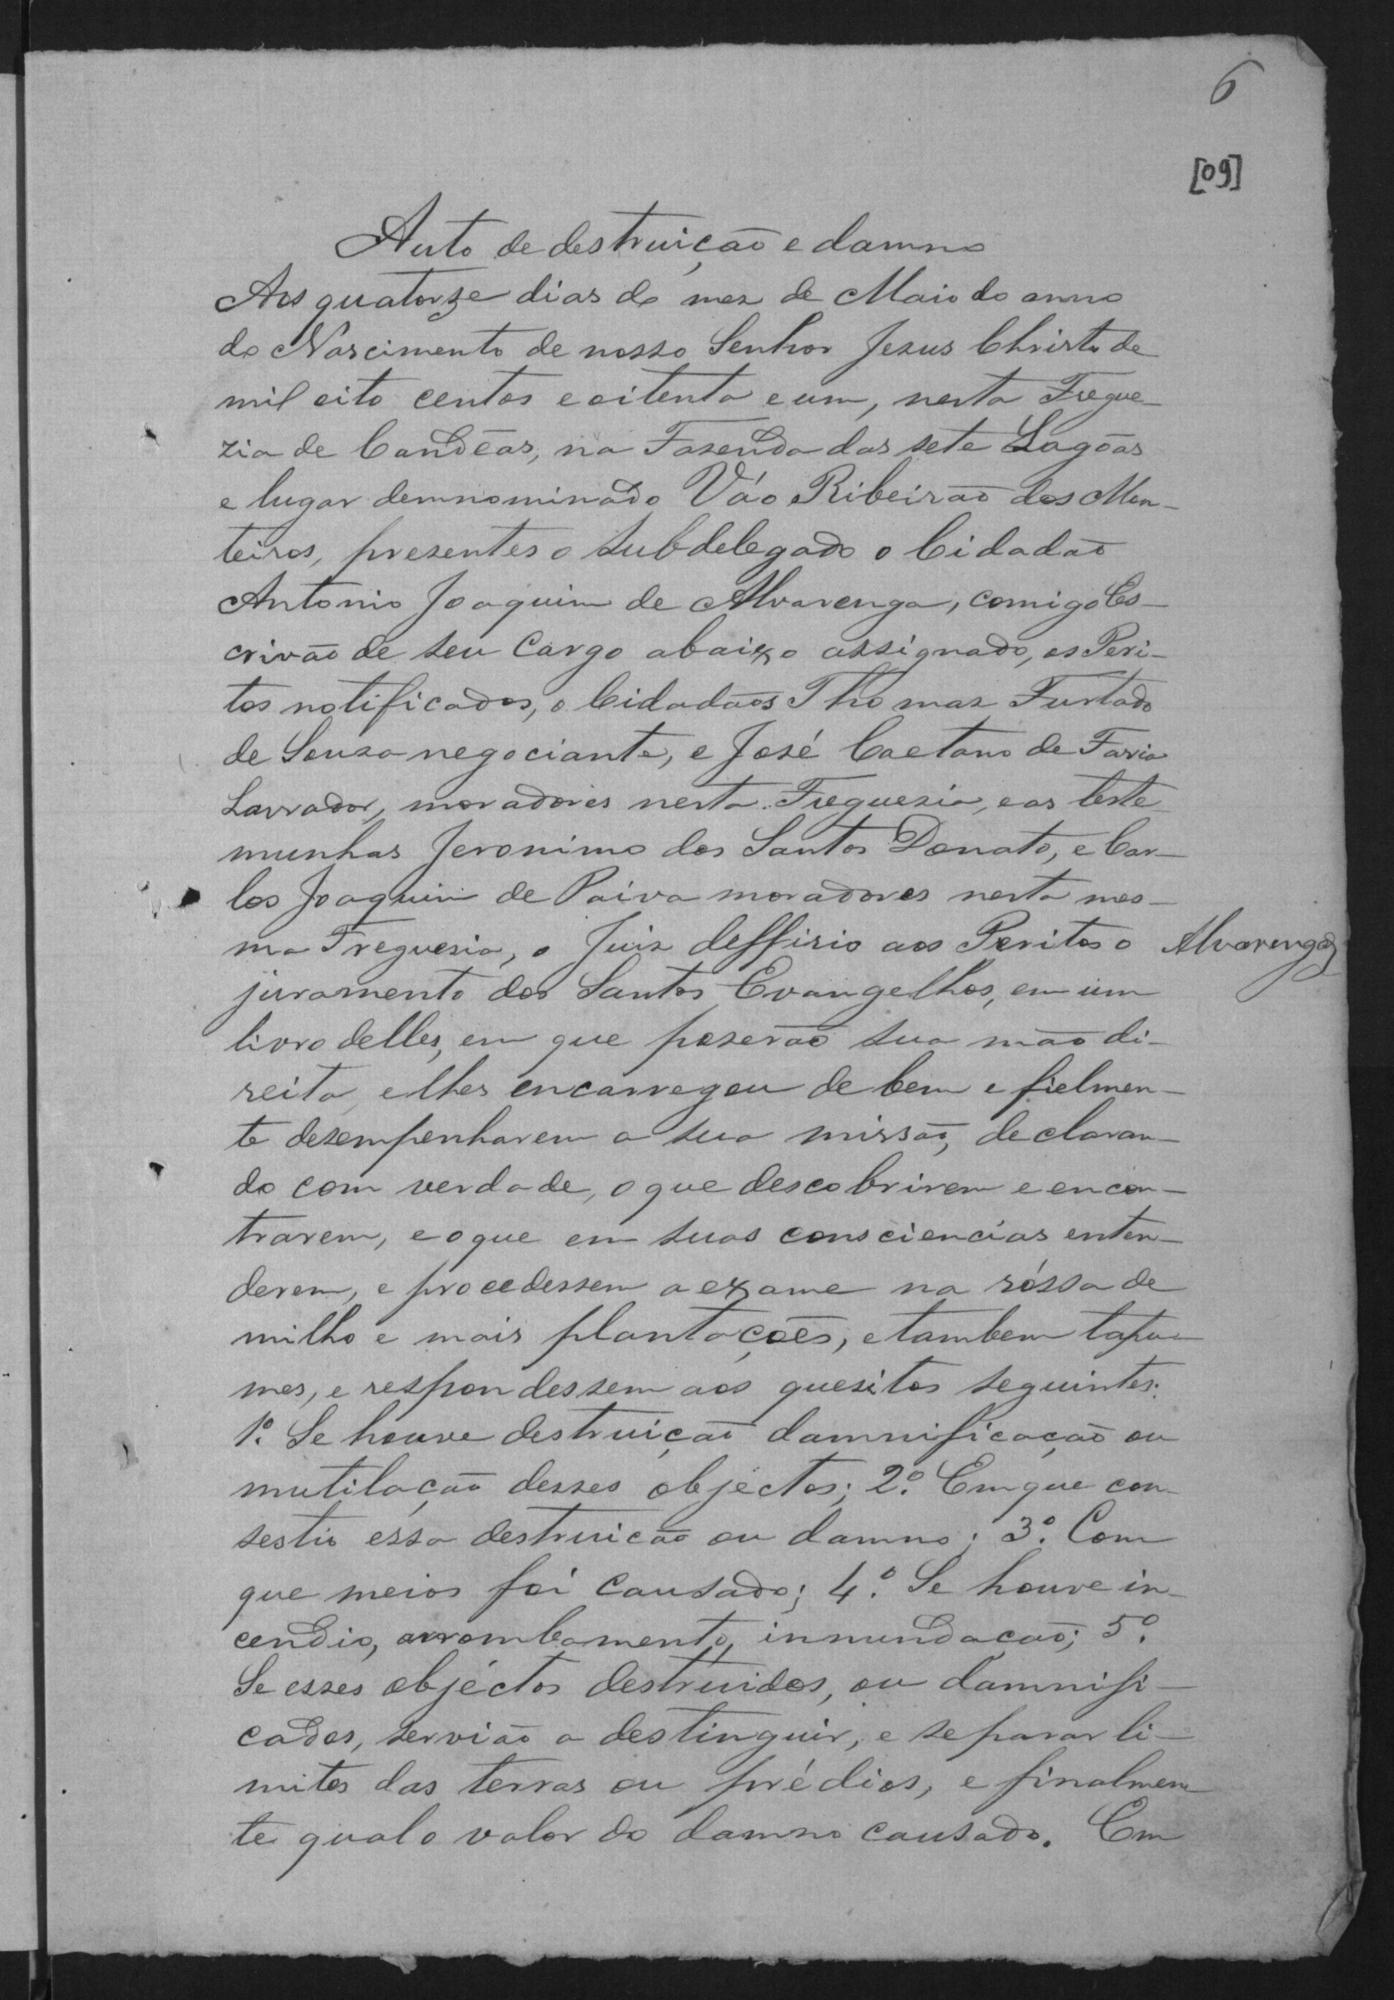 6
[09]
Auto de destruição e damno
Aos quatorze dias do mez de Maio do anno
do Nascimento de nosso Senhor Jesus Christo de
mil oito centos e oitenta e um, nesta Fregue-
zia de Candêas, na Fasenda das sete Lagôas
e lugar demnominado Váo Ribeirão dos Mon-
teiros, presentes o Subdelegado o Cidadão
Antonio Joaquim de Alvarenga, comigo Es-
crivão de seu Cargo abaixo assignado, os Peri-
tos notificados, o Cidadãos Thomaz Furtado
de Souza negociante, e José Caetano de Faria
Lavrador, moradores nesta Freguezia, e as teste
munhas Jeronimo dos Santos Donato, e Car-
los Joaquim de Paiva moradores nesta mes-
ma Freguesia, o Juiz deffirio aos Peritos o
Alvarenga
juramento dos Santos Evangelhos, em um
livro delles, em que poserão sua mão di-
reita, e lhes encarregou de bem e fielmen-
te dezempenharem a sua missão, declaran-
do com verdade, o que descobrirem e encon-
trarem, e o que em suas consciencias enten-
derem, e procedessem a exame na róssa de
milho e mais plantações, e tambem tapu-
mes, e respondessem aos quesitos seguintes:
1º. Se houve destruição damnificação ou
mutilação desses objectos; 2º. Em que con-
sestio essa destruicão ou damno; 3º. Com
que meios foi causado; 4º. Se houve in-
cendio, arrombamento, inmundacão; 5º.
Se esses objéctos destruidos, ou damnifi-
cados, servião a destinguir, e separar li-
mites das terras ou prédios, e finalmen
te qual o valor do damno causado. Em